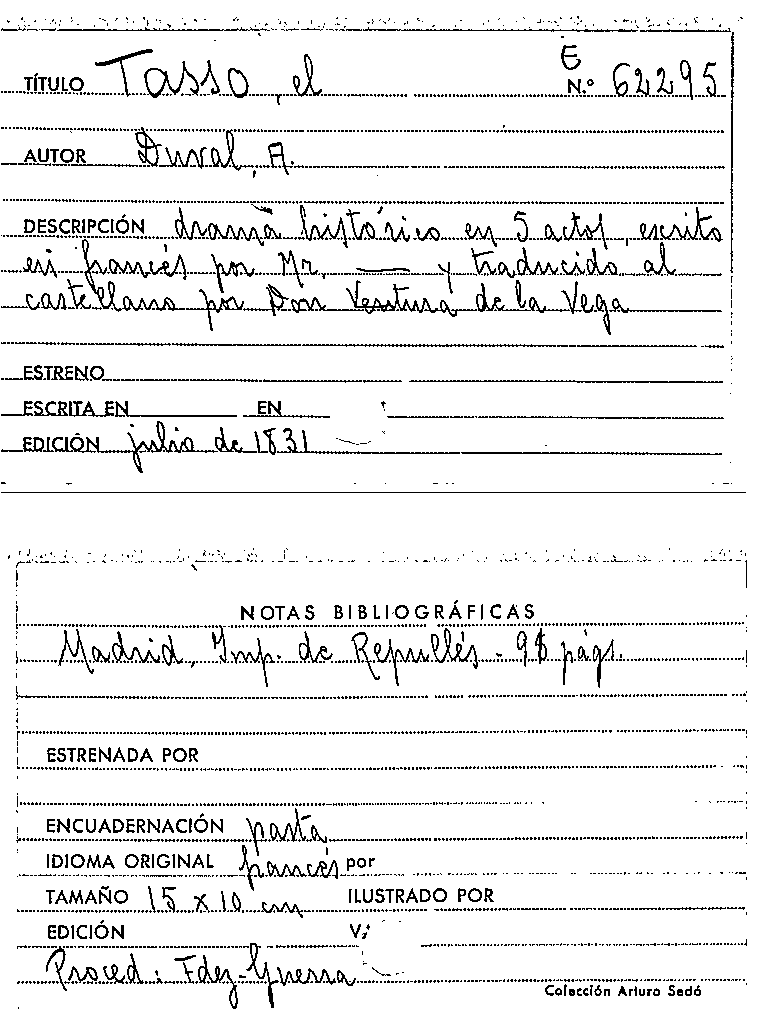 TÍTULO Tasso, el E
N.º 62295
AUTOR Duval, A.
DESCRIPCIÓN drama histórico en 5 actos, escrito
en francés por Mr. —— y traducido al
castellano por Don Ventura de la Vega
ESTRENO
ESCRITA EN EN
EDICIÓN julio de 1831
NOTAS BIBLIOGRÁFICAS
Madrid, Imp. de Repullés - 98 págs.
ESTRENADA POR
ENCUADERNACIÓN pasta
IDIOMA ORIGINAL francés por
TAMAÑO 15 x 10 cm ILUSTRADO POR
EDICIÓN
Proced: Fdez-Guerra
Colección Arturo Sedó